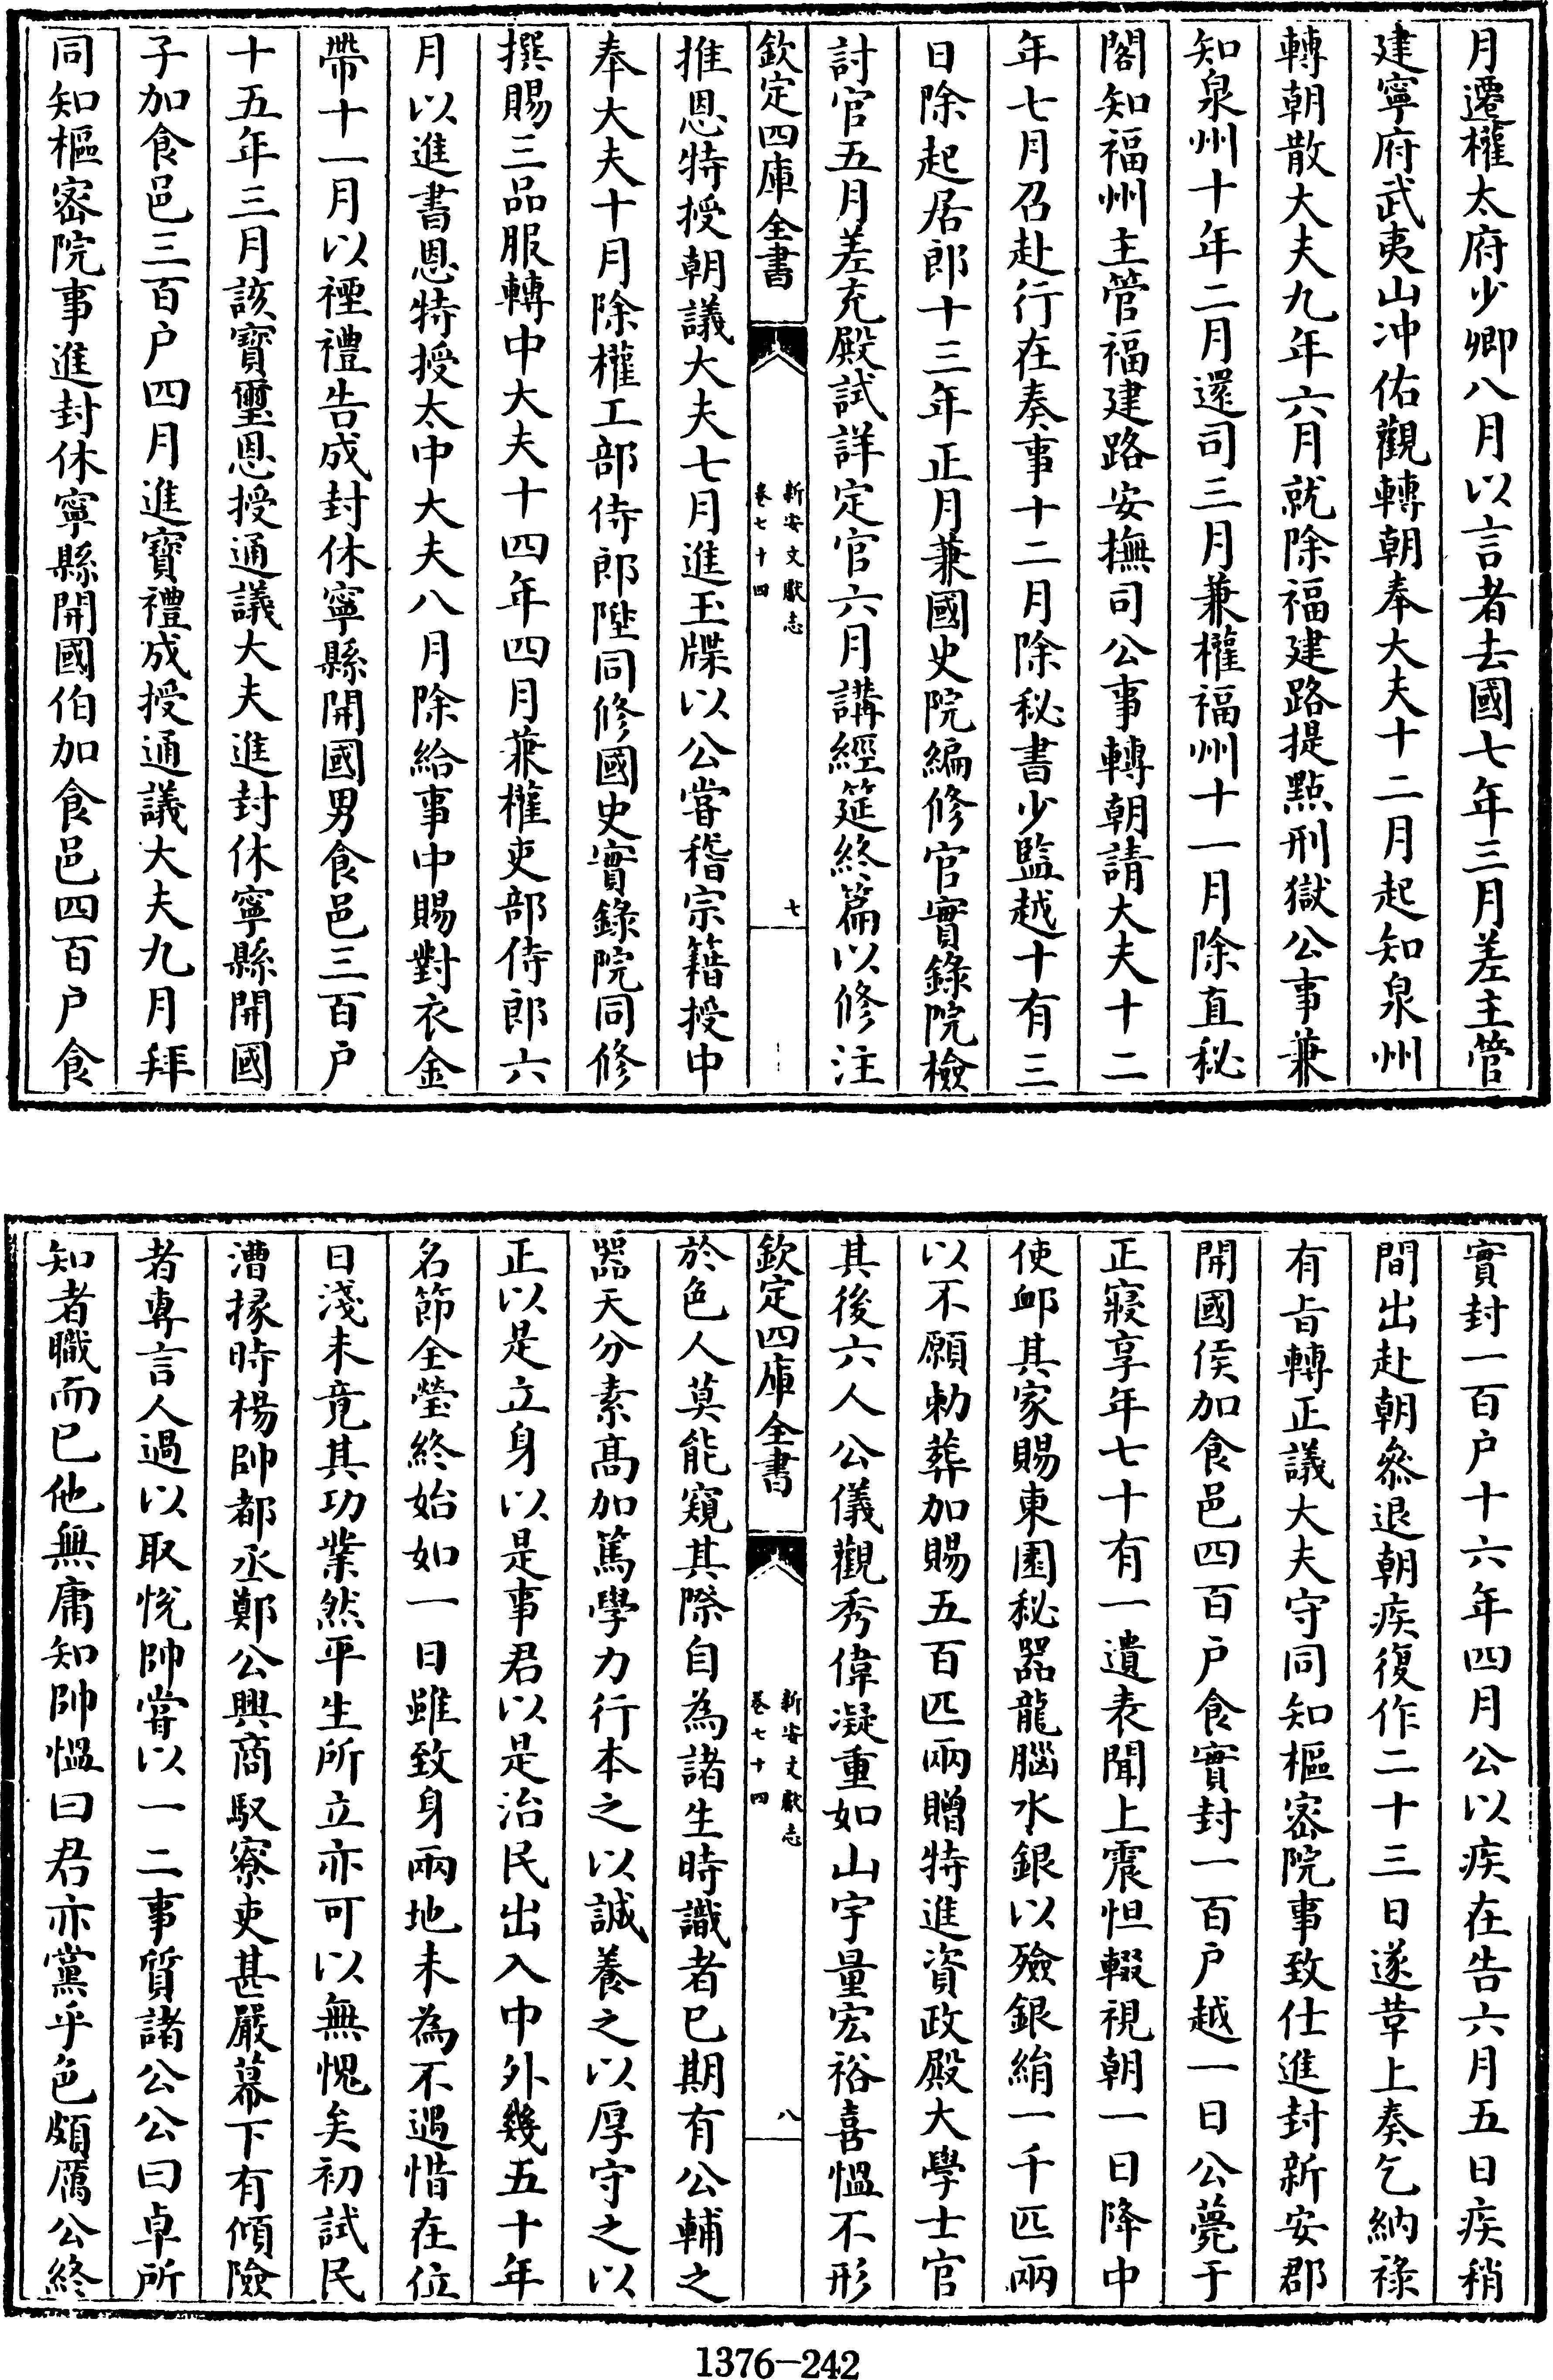 月遷權太府少卿八月以言者去國七年三月差主管
建寧府武夷山冲佑觀轉朝奉大夫十二月起知泉州
轉朝散大夫九年六月就除福建路提點刑獄公事兼
知泉州十年二月還司三月兼權福州十一月除直秘
閣知福州主管福建路安撫司公事轉朝請大夫十二
年七月召赴行在奏事十二月除秘書少監越十有三
日除起居郎十三年正月兼國史院編修官實錄院檢
討官五月差充殿試詳定官六月講經筵終篇以修注
欽定四庫全書
新安文獻志
卷七十四
七
推恩特授朝議大夫七月進玉牒以公嘗稽宗籍授中
奉大夫十月除權工部侍郎陞同修國史實錄院同修
撰賜三品服轉中大夫十四年四月兼權吏部侍郎六
月以進書恩特授太中大夫八月除給事中賜對衣金
帶十一月以禋禮告成封休寧縣開國男食邑三百户
十五年三月該寶璽恩授通議大夫進封休寧縣開國
子加食邑三百户四月進寶禮成授通議大夫九月拜
同知樞密院事進封休寧縣開國伯加食邑四百户食
實封一百户十六年四月公以疾在告六月五日疾稍
間出赴朝叅退朝疾復作二十三日遂草上奏乞納祿
有旨轉正議大夫守同知樞密院事致仕進封新安郡
開國侯加食邑四百户食實封一百户越一日公薨于
正寢享年七十有一遺表聞上震怛輟視朝一日降中
使䘏其家賜東園秘器龍腦水銀以殮銀絹一千匹兩
以不願勅葬加賜五百匹兩贈特進資政殿大學士官
其後六人公儀觀秀偉凝重如山宇量宏裕喜慍不形
欽定四庫全書
新安文獻志
卷七十四
八
於色人莫能窺其際自為諸生時識者已期有公輔之
器天分素髙加篤學力行本之以誠養之以厚守之以
正以是立身以是事君以是治民出入中外幾五十年
名節全瑩終始如一日雖致身兩地未為不遇惜在位
日淺未竟其功業然平生所立亦可以無愧矣初試民
漕掾時楊帥都丞鄭公興商馭寮吏甚嚴幕下有傾險
者專言人過以取悦帥嘗以一二事質諸公公曰卓所
知者職而已他無庸知帥慍曰君亦黨乎色頗厲公終
1376-242